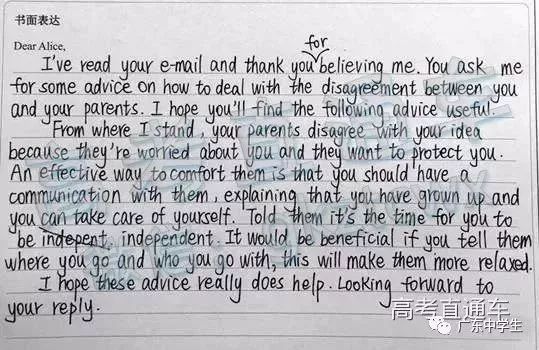 书面表达
Dear Alice,
for
I've read your e-mail and thank you believing me. You ask me
for some advice on how to deal with the disagreement between you
and your parents. I hope you'll find the following advice useful.
From where I stand, your parents disagree with your idea
because they're worried about you and they want to protect you.
An effective way to comfort them is that you should have a
communication with them, explaining that you have grown up and
you can take care of yourself. Told them it's the time for you to
be indepent, independent. It would be beneficial if you tell them
where you go and who you go with, this will make them more relaxed.
I hope these advice really does help. Looking forward to
your reply.
高考直通车
广东中学生